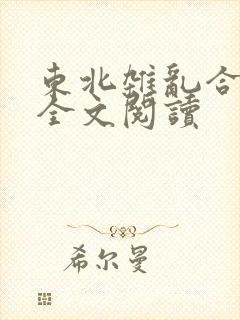 東北雜亂合
全文閱讀
希尔曼